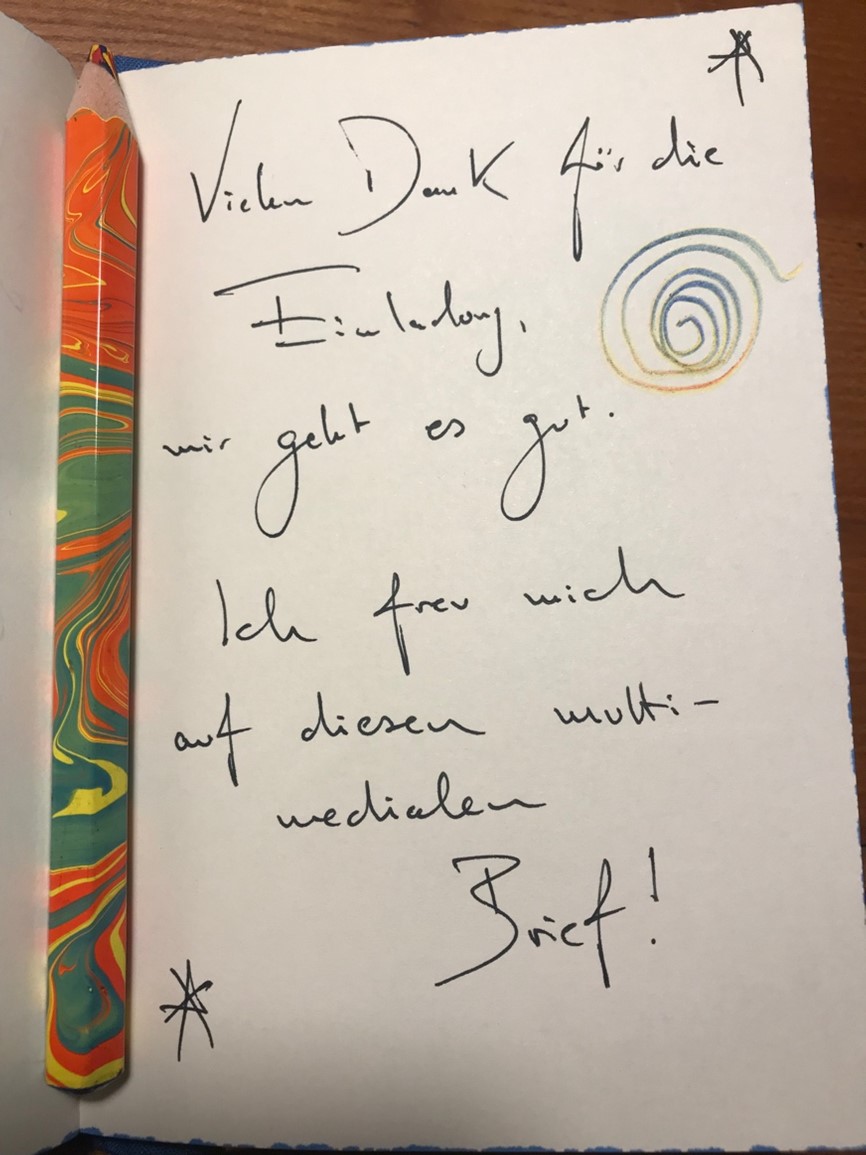 Vielen Dank für die
Einladung,
mir geht es gut.
Ich freu mich
auf diesen multi-
medialen
Brief!